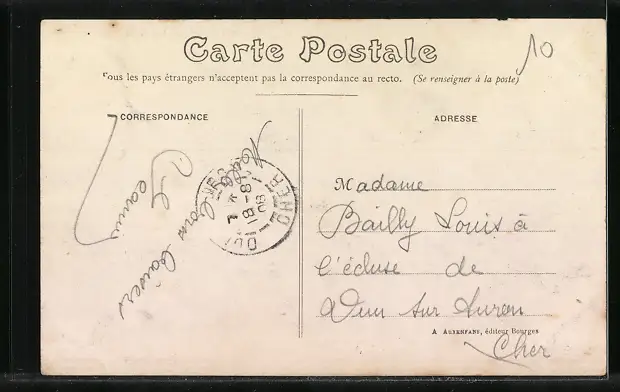 Carte Postale
Tous les pays étrangers n'acceptent pas la correspondance au recto. (Se renseigner à la poste)
10
CORRESPONDANCE
ADRESSE
Mille bons baisers
Madame
Bailly Louis à
l'écluse de
Dun sur Auron
Cher
A AUXENFANS, éditeur Bourges
CHER